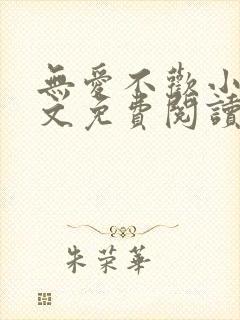 無愛不歡小
文免費閱讀
朱荣華